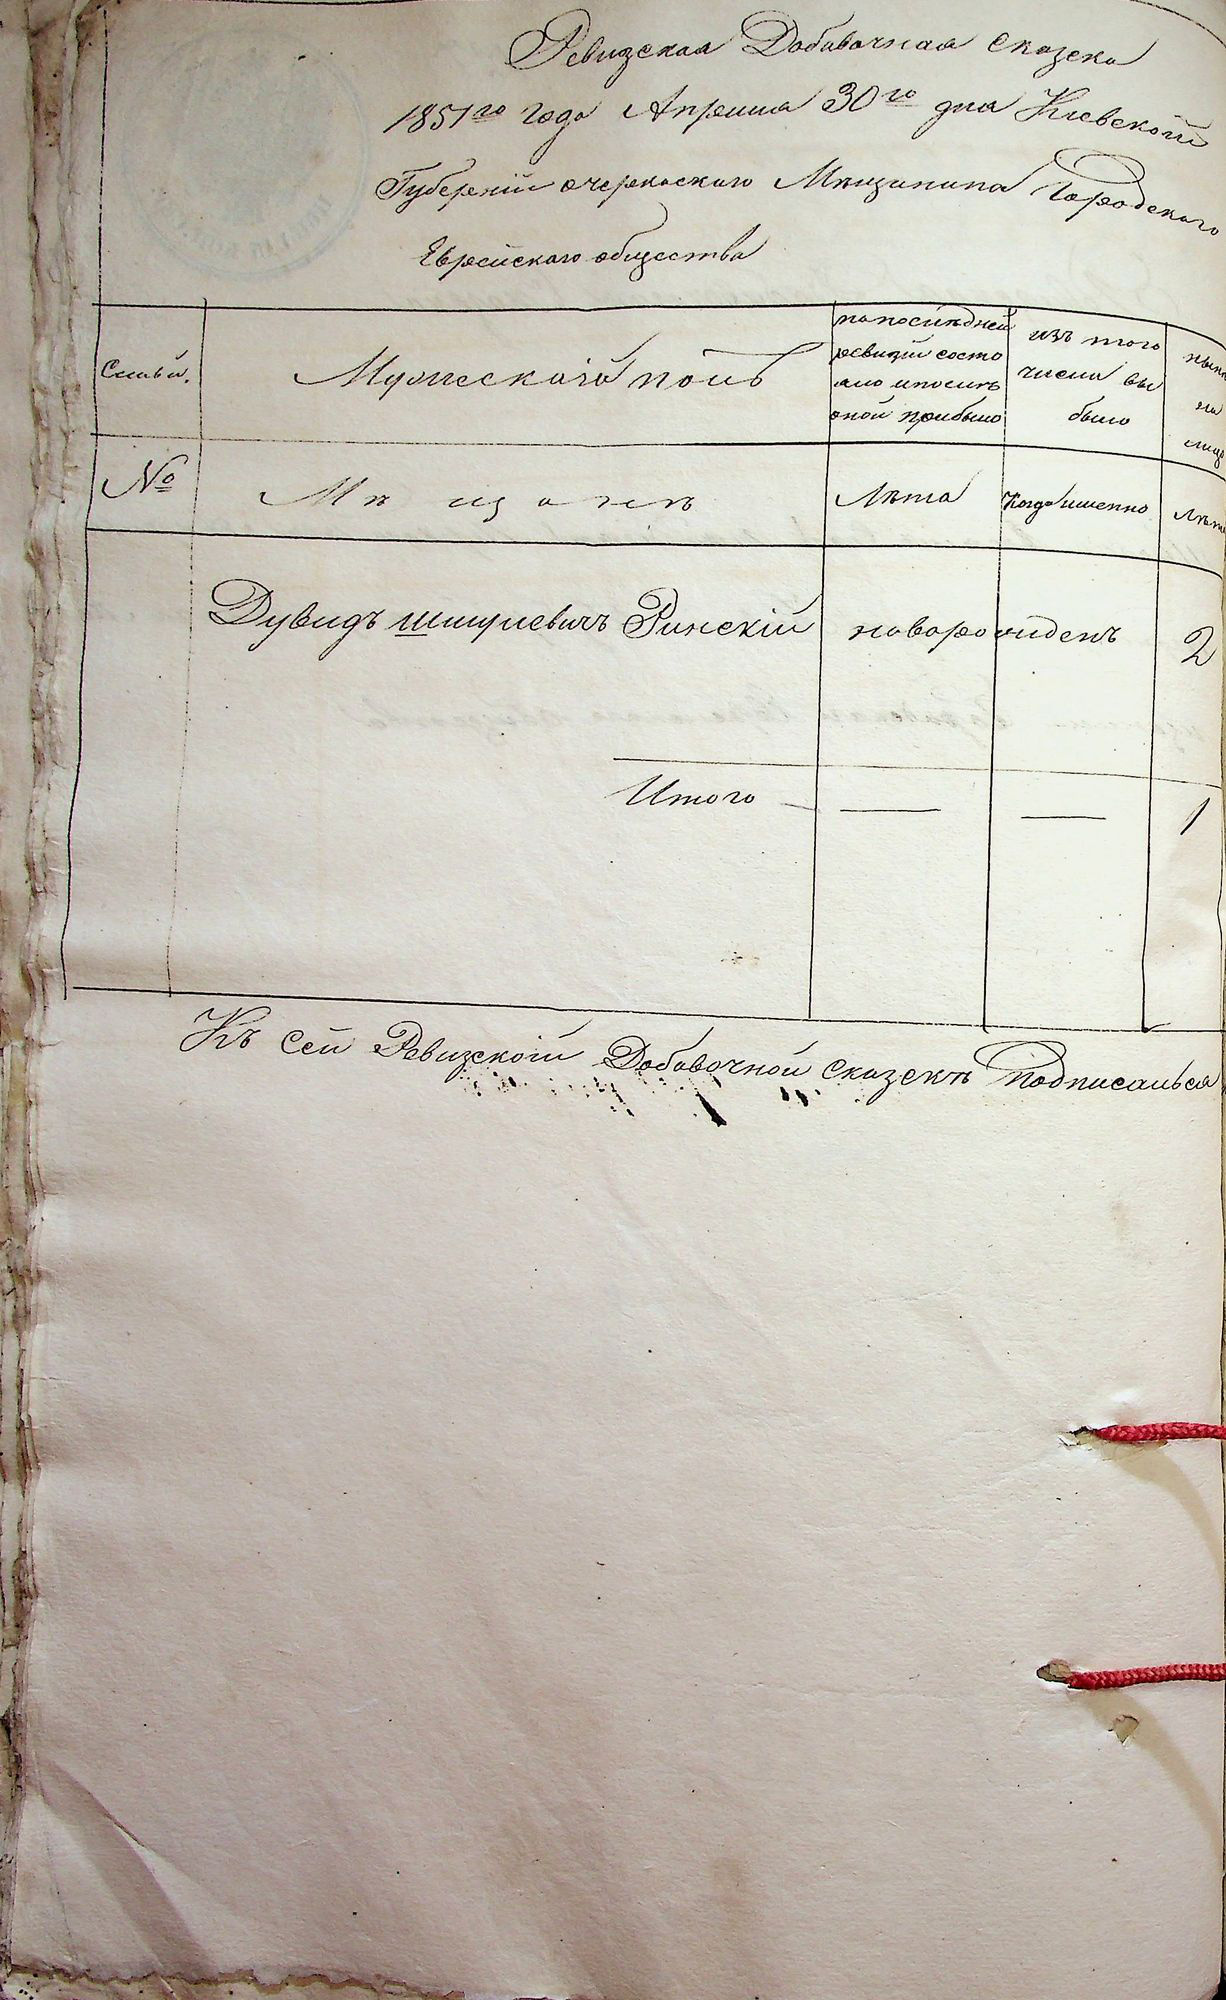 Ревизская Добавочная сказска
1851го года Апреля 30го дня Киевской
Губерніи очеркаскаго Мѣщанина Городскаго
Еврейскаго общества
Семьи.
Мужескаго полъ
по последней
ревизіи состо
яло и послѣ
оной прибыло
изъ того
числа вы
было
ныне
на
лицо
№
Мѣщане
Лѣта
когда именно
Лѣта
Дувидъ Шмулевичъ Ринскій новорожденъ 2
Итого — — 1
Къ сей Ревизской Добавочной сказскѣ подписалься